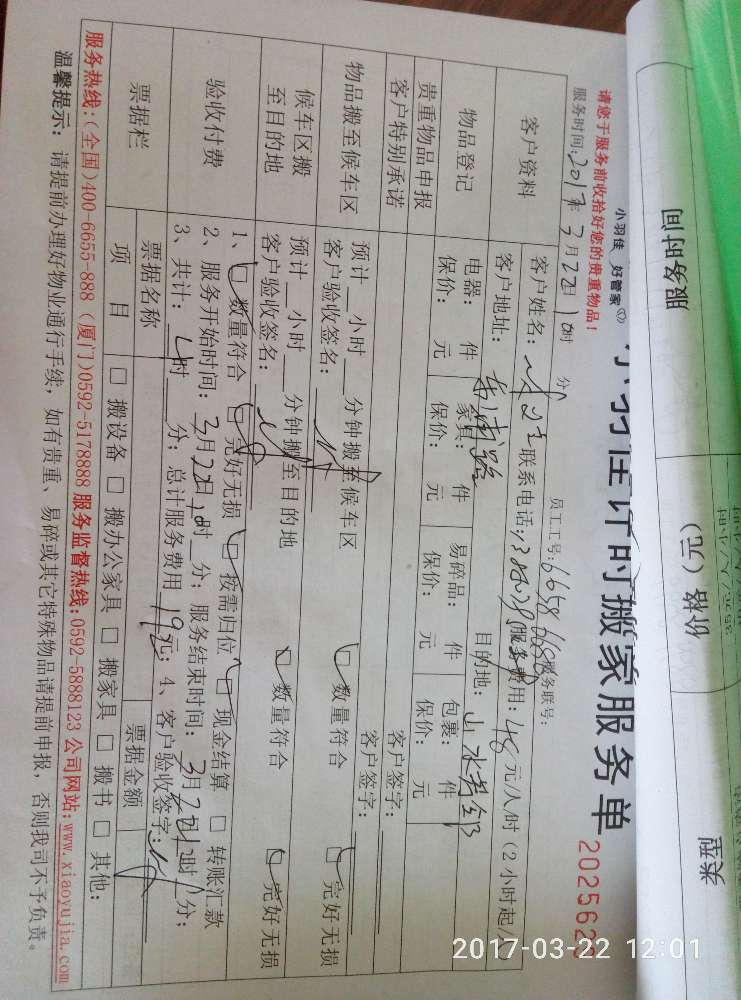 小羽佳 好管家
小羽佳计时搬家服务单
2025629
请您于服务前收拾好您的贵重物品!
服务时间:2017年3月22日10时 分
员工工号:6658 6688
服务联号:
客户资料
客户姓名: 联系电话: 服务费用:48元/人/时(2小时起/
客户地址: 目的地:山水
物品登记
电器: 件 家具: 件 易碎品: 件 包裹: 件
保价: 元 保价: 元 保价: 元 保价: 元
贵重物品申报
客户特别承诺
客户签字:
客户签字:
物品搬至候车区
预计__小时__分钟搬至候车区
客户验收签名:
数量符合 完好无损
候车区搬
至目的地
预计__小时__分钟搬至目的地
客户验收签名:
数量符合 完好无损
验收付费
1、 数量符合 完好无损 按需归位 现金结算 转账汇款
2、服务开始时间:3月22日10时__分;服务结束时间:3月22日12时__分;
3、共计: 时__分;总计服务费用192元;4、客户验收签字:
票据栏
票据名称
票据金额
项 目
搬设备 搬办公家具 搬家具 搬书 其他:
服务热线:(全国)400-6655-888(厦门)0592-5178888 服务监督热线:0592-5888123 公司网站:www.xiaoyujia.com
温馨提示:请提前办理好物业通行手续,如有贵重、易碎或其它特殊物品请提前申报,否则我司不予负责。
服务时间
价格(元)
类型
2017-03-22 12:01